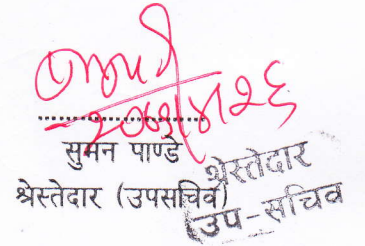 सुमन पाण्डे
श्रेस्तेदार (उपसचिव)
श्रेस्तेदार
उप-सचिव